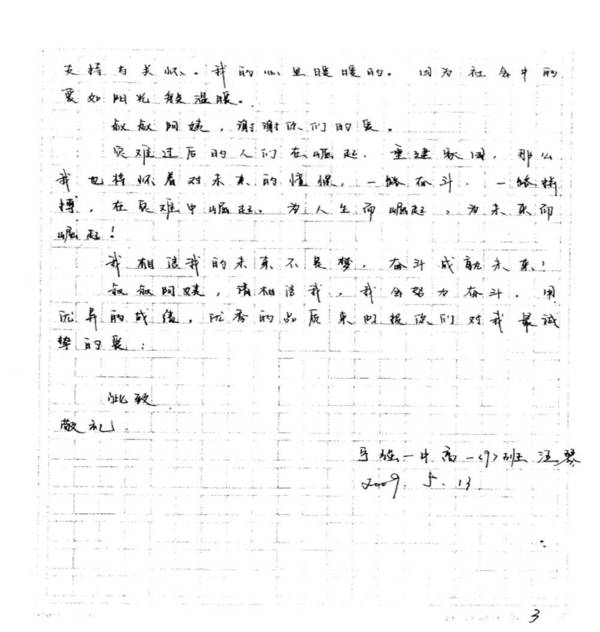 支持与关怀。我的心里暖暖的。因为社会中的
爱如阳光般温暖。
叔叔阿姨，谢谢你们的爱。
灾难过后的人们在崛起，重建家园，那么
我也将怀着对未来的憧憬，一路奋斗，一路拼
搏，在灾难中崛起。为人生而崛起，为未来而
崛起！
我相信我的未来不是梦，奋斗成就未来！
叔叔阿姨，请相信我，我会努力奋斗，用
优异的成绩，优秀的品质来回报你们对我最诚
挚的爱！
此致
敬礼！
一中高一〈9〉班 汪琴
2009. 5. 13
3